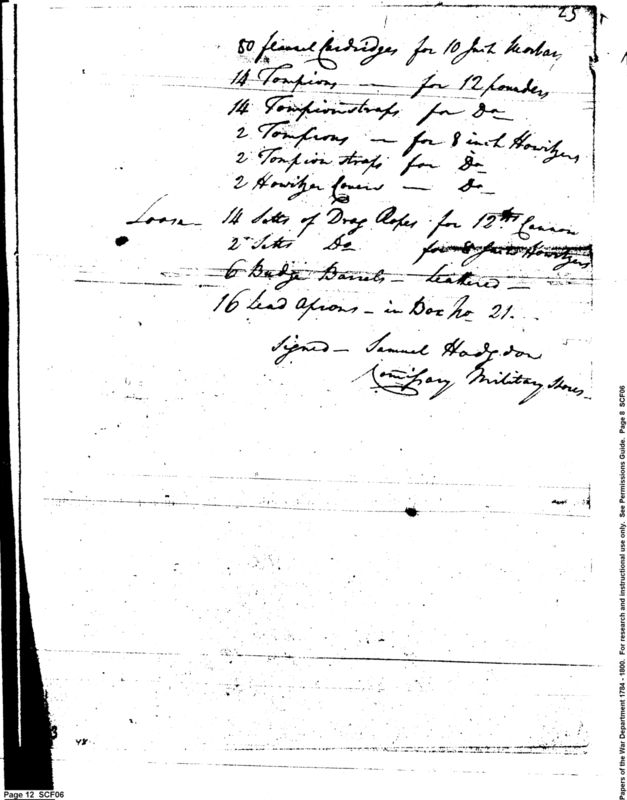 25
80 flannel Cartridges for 10 Inch Mortars
14 Tompions — for 12 pounders
14 Tompion straps for Do
2 Tompions — for 8 inch Howitzers
2 Tompion straps for Do
2 Howitzer Covers — Do
Loose — 14 Setts of Drag Ropes for 12 Cannon
2 Setts Do for 8 Inch Howitzers
6 Budge Barrels — Leathered —
16 Lead Aprons — in Box No 21.
Signed — Samuel Hodgdon
Comissary Military Stores —
48
Page 12 SCF06
Papers of the War Department 1784 - 1800. For research and instructional use only. See Permissions Guide. Page 8 SCF06